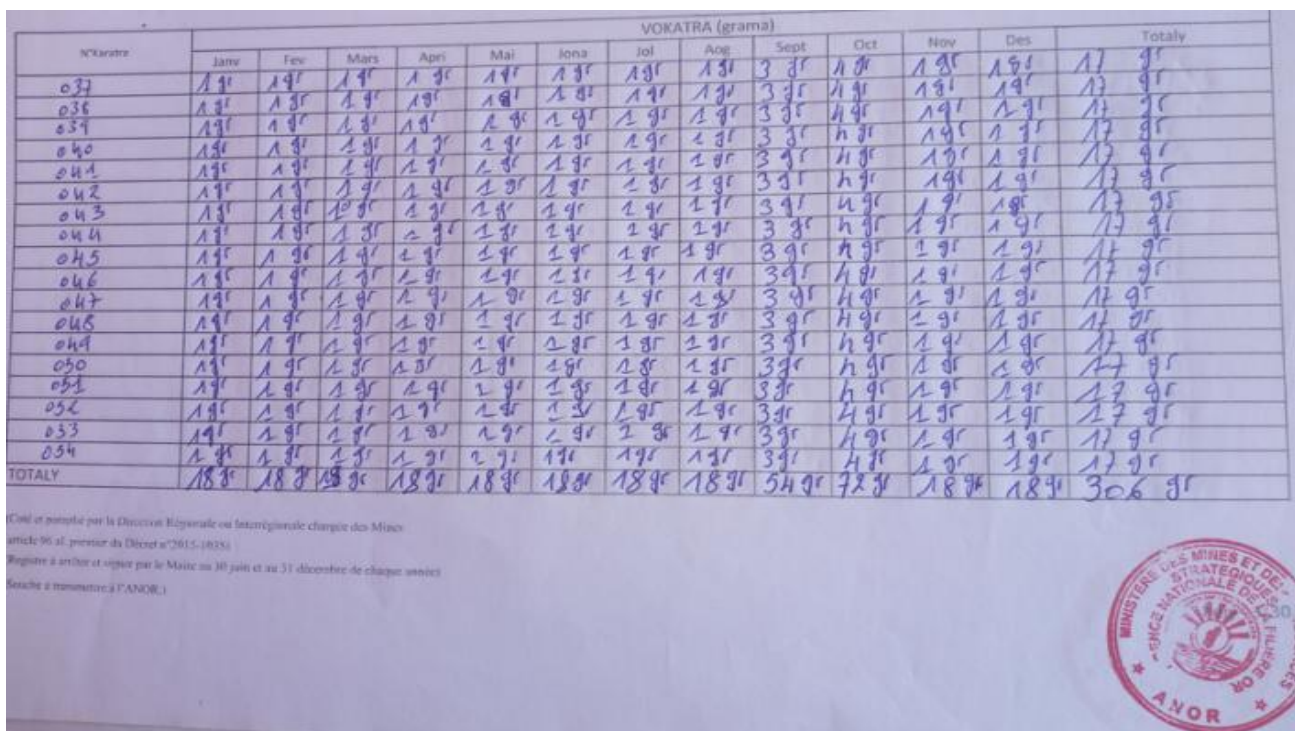 VOKATRA (grama)
N°Karatra Janv Fev Mars Apri Mai Jona Jol Aog Sept Oct Nov Des Totaly
037 1 gr 1 gr 1 gr 1 gr 1 gr 1 gr 1 gr 1 gr 3 gr 4 gr 1 gr 1 gr 17 gr
038 1 gr 1 gr 1 gr 1 gr 1 gr 1 gr 1 gr 1 gr 3 gr 4 gr 1 gr 1 gr 17 gr
039 1 gr 1 gr 1 gr 1 gr 1 gr 1 gr 1 gr 1 gr 3 gr 4 gr 1 gr 1 gr 17 gr
040 1 gr 1 gr 1 gr 1 gr 1 gr 1 gr 1 gr 1 gr 3 gr 4 gr 1 gr 1 gr 17 gr
041 1 gr 1 gr 1 gr 1 gr 1 gr 1 gr 1 gr 1 gr 3 gr 4 gr 1 gr 1 gr 17 gr
042 1 gr 1 gr 1 gr 1 gr 1 gr 1 gr 1 gr 1 gr 3 gr 4 gr 1 gr 1 gr 17 gr
043 1 gr 1 gr 1 gr 1 gr 1 gr 1 gr 1 gr 1 gr 3 gr 4 gr 1 gr 1 gr 17 gr
044 1 gr 1 gr 1 gr 1 gr 1 gr 1 gr 1 gr 1 gr 3 gr 4 gr 1 gr 1 gr 17 gr
045 1 gr 1 gr 1 gr 1 gr 1 gr 1 gr 1 gr 1 gr 3 gr 4 gr 1 gr 1 gr 17 gr
046 1 gr 1 gr 1 gr 1 gr 1 gr 1 gr 1 gr 1 gr 3 gr 4 gr 1 gr 1 gr 17 gr
047 1 gr 1 gr 1 gr 1 gr 1 gr 1 gr 1 gr 1 gr 3 gr 4 gr 1 gr 1 gr 17 gr
048 1 gr 1 gr 1 gr 1 gr 1 gr 1 gr 1 gr 1 gr 3 gr 4 gr 1 gr 1 gr 17 gr
049 1 gr 1 gr 1 gr 1 gr 1 gr 1 gr 1 gr 1 gr 3 gr 4 gr 1 gr 1 gr 17 gr
050 1 gr 1 gr 1 gr 1 gr 1 gr 1 gr 1 gr 1 gr 3 gr 4 gr 1 gr 1 gr 17 gr
051 1 gr 1 gr 1 gr 1 gr 1 gr 1 gr 1 gr 1 gr 3 gr 4 gr 1 gr 1 gr 17 gr
052 1 gr 1 gr 1 gr 1 gr 1 gr 1 gr 1 gr 1 gr 3 gr 4 gr 1 gr 1 gr 17 gr
053 1 gr 1 gr 1 gr 1 gr 1 gr 1 gr 1 gr 1 gr 3 gr 4 gr 1 gr 1 gr 17 gr
054 1 gr 1 gr 1 gr 1 gr 1 gr 1 gr 1 gr 1 gr 3 gr 4 gr 1 gr 1 gr 17 gr
TOTALY 18 gr 18 gr 18 gr 18 gr 18 gr 18 gr 18 gr 18 gr 54 gr 72 gr 18 gr 18 gr 306 gr
(Coté et paraphé par la Direction Régionale ou Interrégionale chargée des Mines
article 96 al. premier du Décret n°2015-1035)
Registre à arrêter et signer par le Maire au 30 juin et au 31 décembre de chaque année)
Souche à transmettre à l'ANOR.)
MINISTERE DES MINES ET DES
STRATEGIQUES
AGENCE NATIONALE DE LA FILIERE OR
ANOR